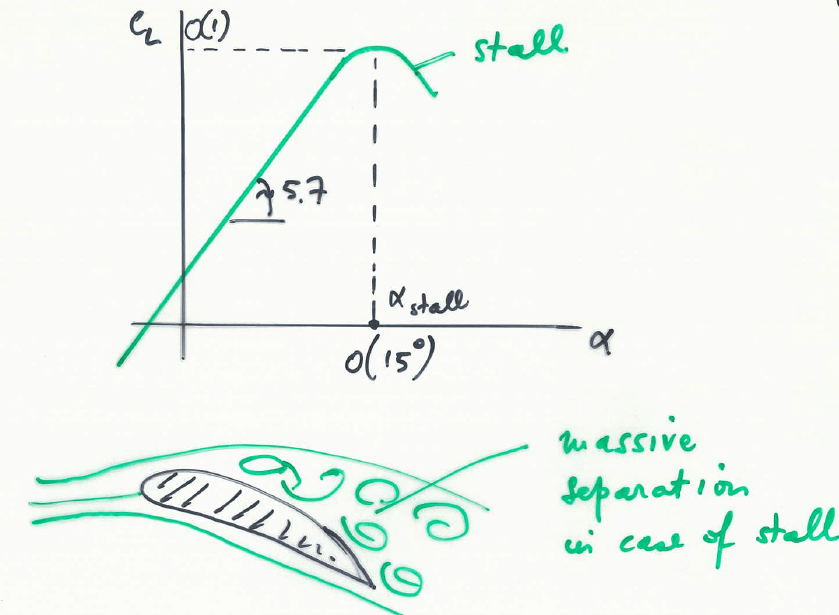 C_L O(1)
stall
5.7
α_stall
α
O(15°)
massive
separation
in case of stall